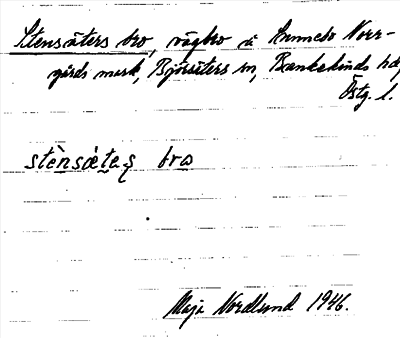 Stensäters bro, vägbro å Ammebo Norr-
gårds mark, Björsäters sn, Bankekinds hd,
Östg. l.
stènsǽtaʂ bro
Maja Nordlund 1946.